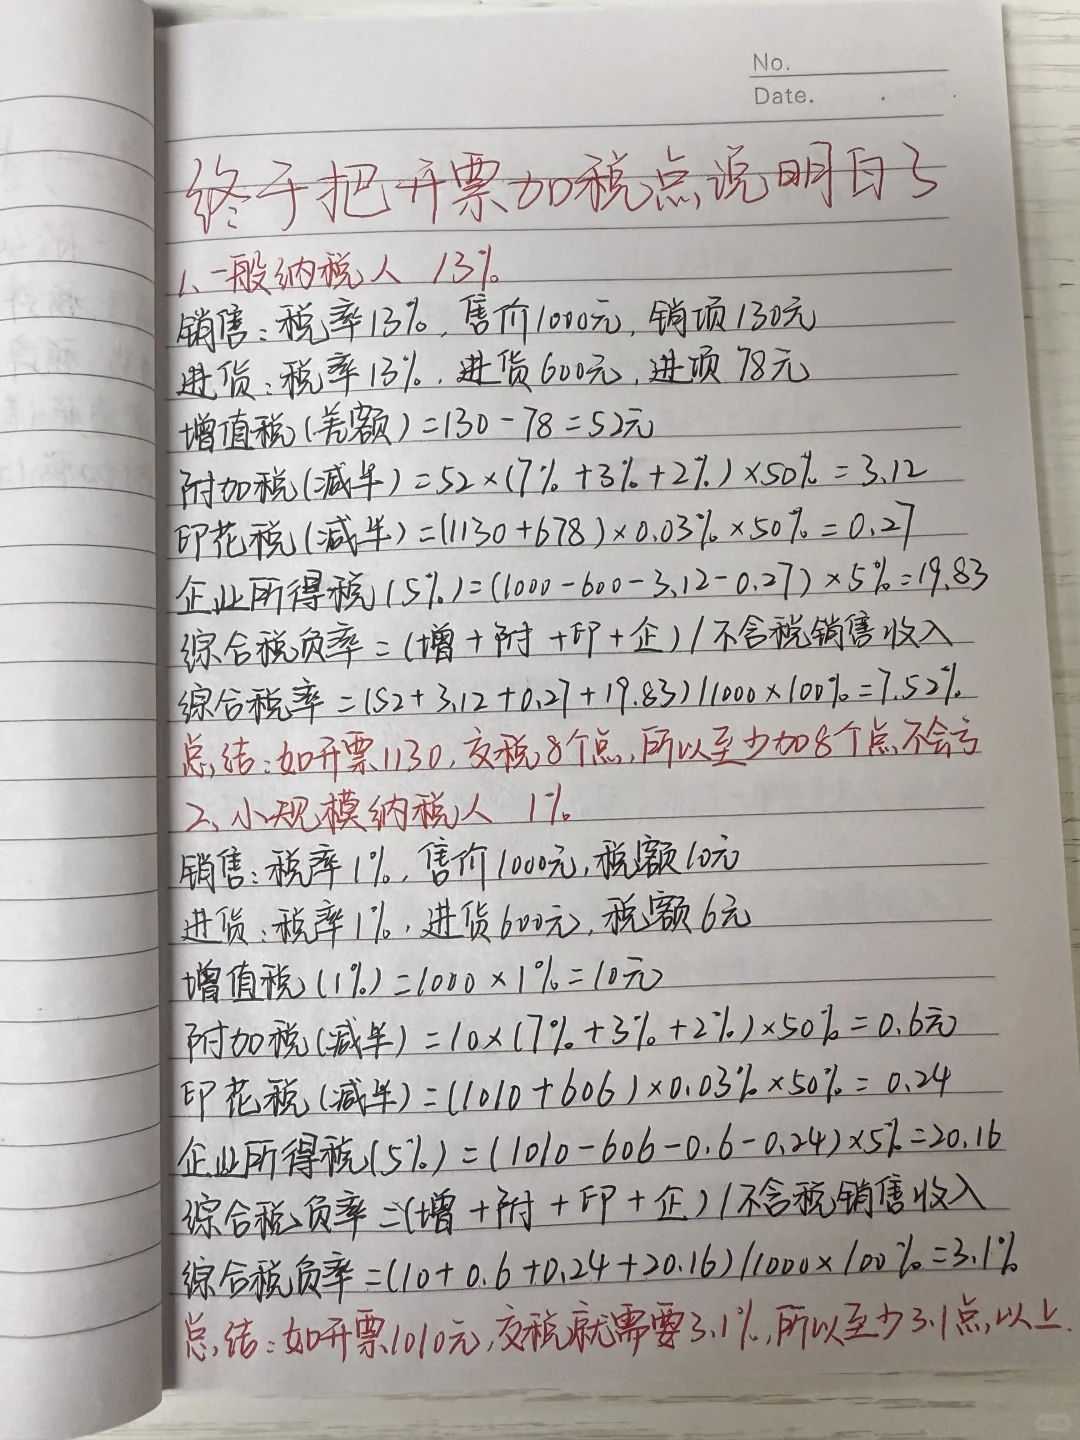 No.
Date.
终于把开票加税点说明白了
1、一般纳税人 13%
销售:税率13%,售价1000元,销项130元
进货:税率13%,进货600元,进项78元
增值税(差额)=130-78=52元
附加税(减半)=52×(7%+3%+2%)×50%=3.12
印花税(减半)=(1130+678)×0.03%×50%=0.27
企业所得税(5%)=(1000-600-3.12-0.27)×5%=19.83
综合税负率=(增+附+印+企)/不含税销售收入
综合税率=(52+3.12+0.27+19.83)/1000×100%=7.52%
总结:如开票1130,交税8个点,所以至少加8个点不会亏
2、小规模纳税人 1%
销售:税率1%,售价1000元,税额10元
进货:税率1%,进货600元,税额6元
增值税(1%)=1000×1%=10元
附加税(减半)=10×(7%+3%+2%)×50%=0.6元
印花税(减半)=(1010+606)×0.03%×50%=0.24
企业所得税(5%)=(1010-606-0.6-0.24)×5%=20.16
综合税负率=(增+附+印+企)/不含税销售收入
综合税负率=(10+0.6+0.24+20.16)/1000×100%=3.1%
总结:如开票1010元,交税就需要3.1%,所以至少3.1点以上.